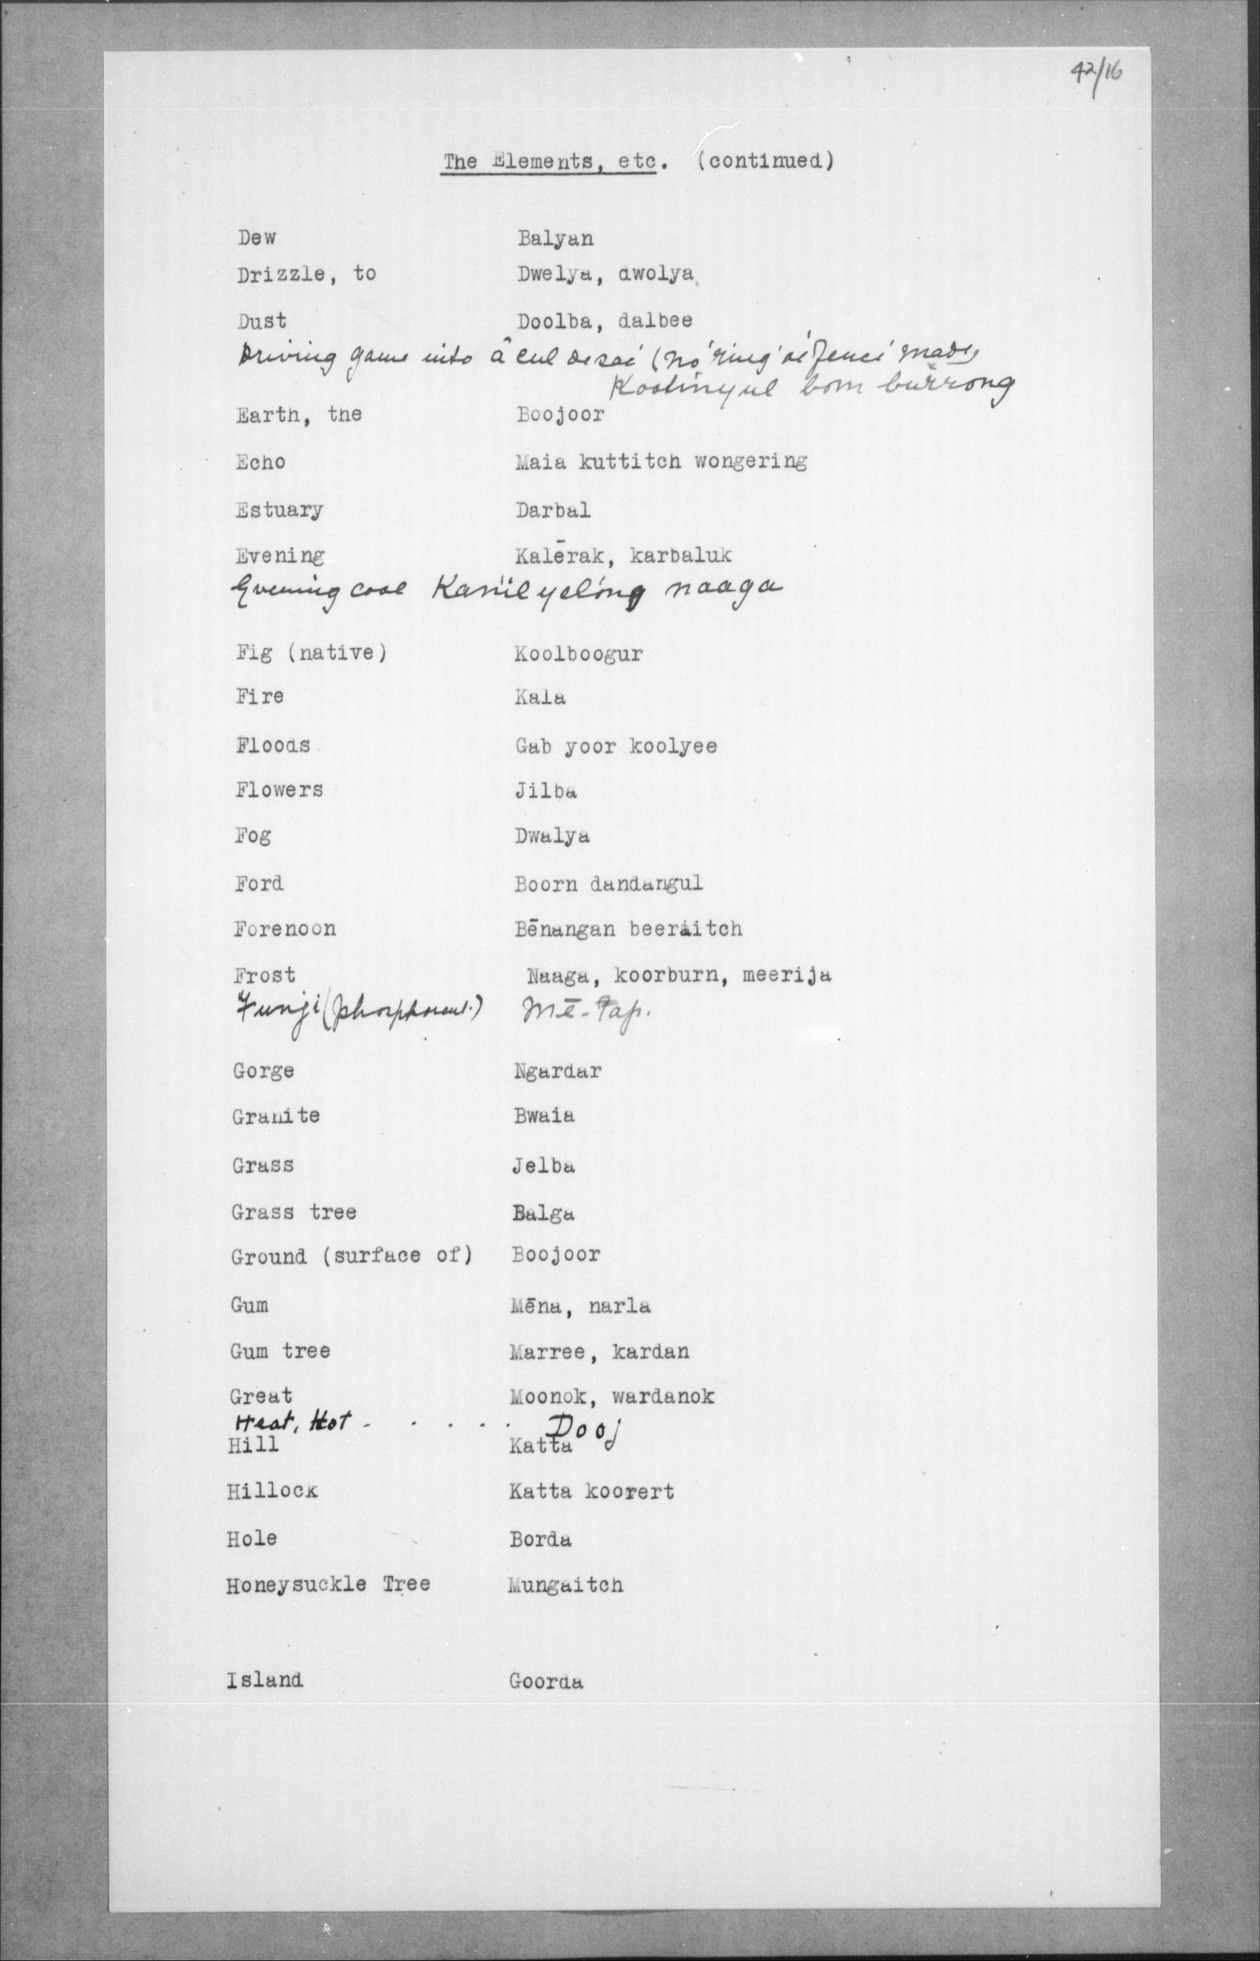 42/16
The Elements, etc. (continued)
Dew Balyan
Drizzle, to Dwelya, dwolya
Dust Doolba, dalbee
Driving game into a cul de sac (no 'ring' or fence' made)
Kootinyul bom burrong
Earth, the Boojoor
Echo Maia kuttitch wongering
Estuary Darbal
Evening Kalērak, karbaluk
Evening cool naaga
Fig (native) Koolboogur
Fire Kala
Floods Gab yoor koolyee
Flowers Jilba
Fog Dwalya
Ford Boorn dandangul
Forenoon Bēnangan beeraitch
Frost Naaga, koorburn, meerija
Fungi (phosphorent.) Mē-tap.
Gorge Ngardar
Granite Bwaia
Grass Jelba
Grass tree Balga
Ground (surface of) Boojoor
Gum Mēna, narla
Gum tree Marree, kardan
Great Moonok, wardanok
Heat, Hot - . . . . Dooj
Hill Katta
Hillock Katta koorert
Hole Borda
Honeysuckle Tree Mungaitch
Island Goorda